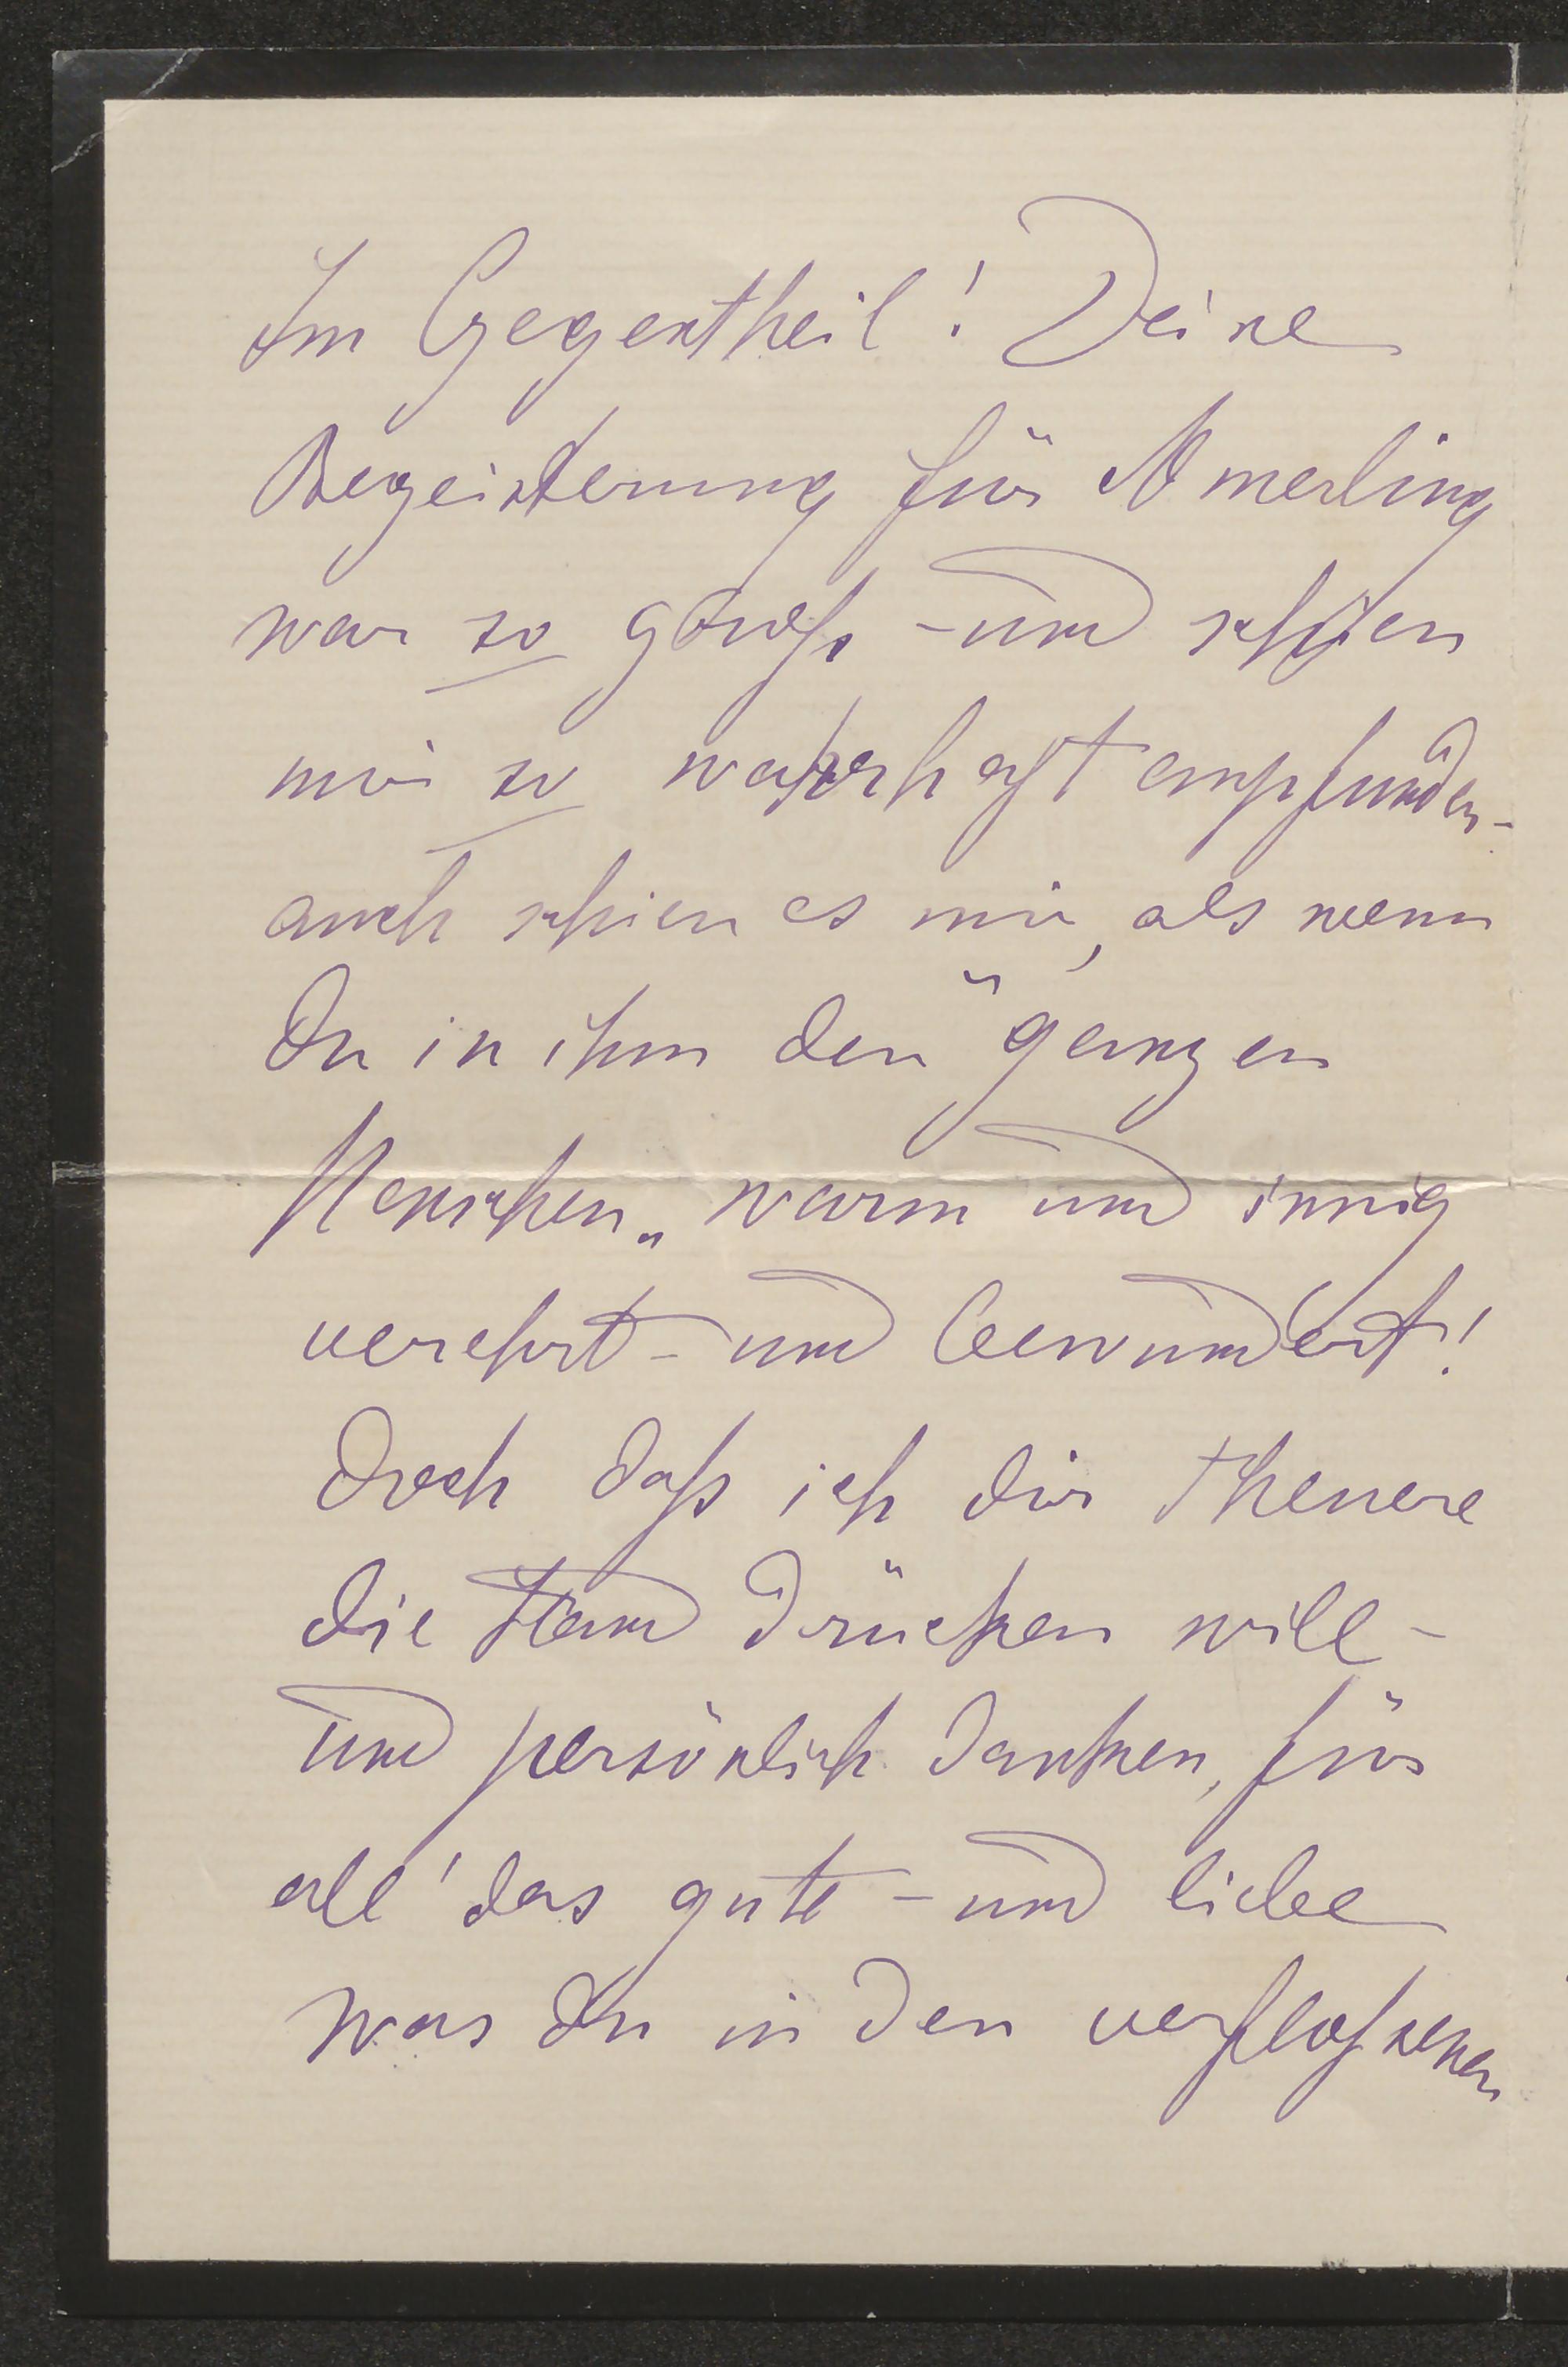 Im Gegentheil! Deine
Begeisterung für Amerling
war so groß - und schien
mir so wahrhaft empfunden -
auch schien es mir, als wenn
Du in ihm den "ganzen
Menschen„ warm und innig
verehrt - und bewundert!
Doch daß ich dir Theuere
die Hand drücken will -
und persönlich danken, für
all' das gute - und liebe
was Du in den verfloßenen